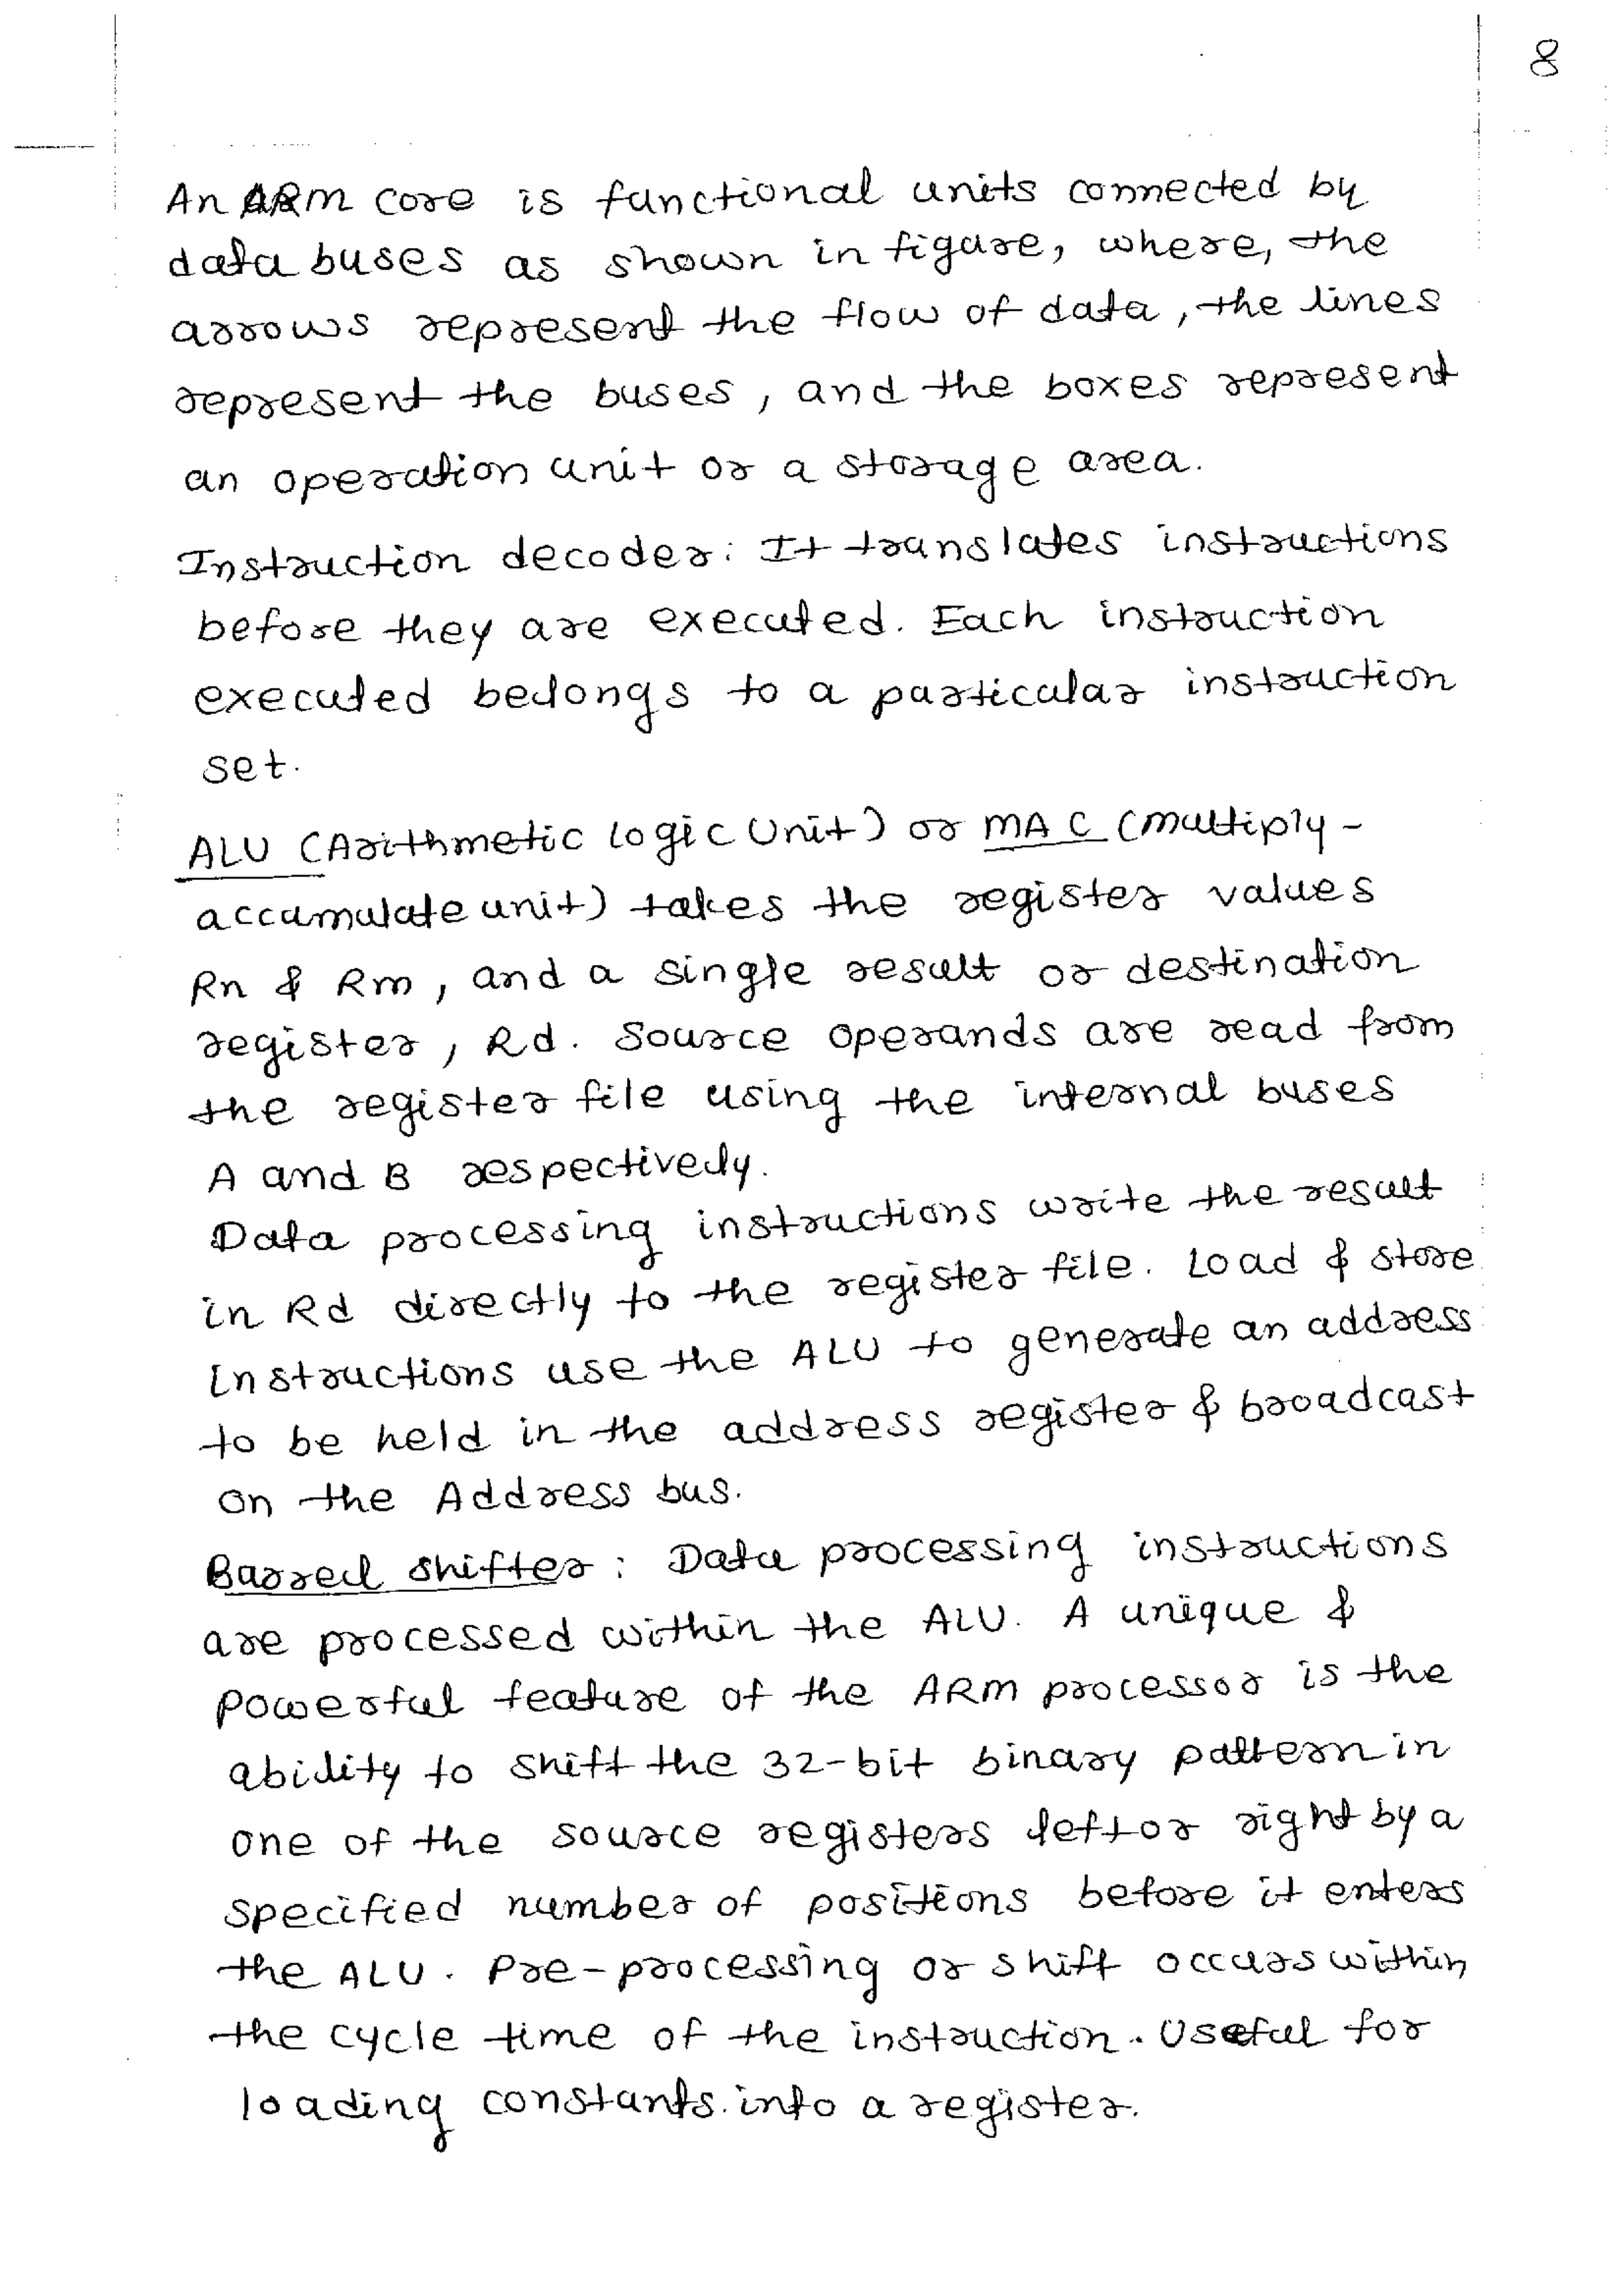 8
An ARM core is functional units connected by
data buses as shown in figure, where, the
arrows represent the flow of data, the lines
represent the buses, and the boxes represent
an operation unit or a storage area.
Instruction decoder: It translates instructions
before they are executed. Each instruction
executed belongs to a particular instruction
set.
ALU (Arithmetic logic Unit) or MAC (multiply-
accumulate unit) takes the register values
Rn & Rm, and a single result or destination
register, Rd. Source operands are read from
the register file using the internal buses
A and B respectively.
Data processing instructions write the result
in Rd directly to the register file. Load & store
Instructions use the ALU to generate an address
to be held in the address register & broadcast
on the Address bus.
Barrel shifter: Data processing instructions
are processed within the ALU. A unique &
powerful feature of the ARM processor is the
ability to shift the 32-bit binary pattern in
one of the source registers left or right by a
specified number of positions before it enters
the ALU. Pre-processing or shift occurs within
the cycle time of the instruction. Useful for
loading constants into a register.